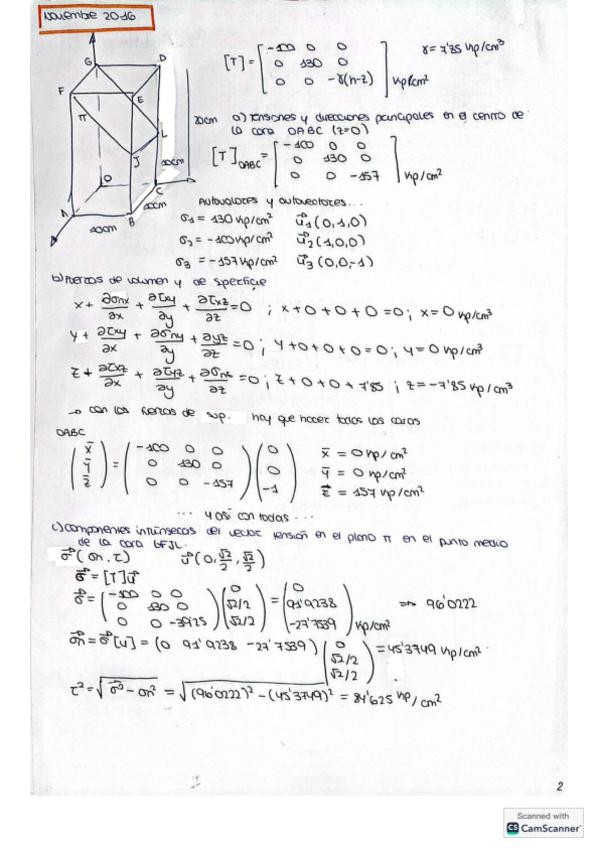 Noviembre 2016
[T] = [-100 0 0
0 130 0
0 0 -γ(h-z)] Kp/cm²
γ = 7'85 Kp/cm³
G
D
F
E
π
L
J
O
C
A
B
20cm
10cm
10cm
10cm
a) tensiones y direcciones principales en el centro de
la cara OABC (z=0)
[T]OABC = [-100 0 0
0 130 0
0 0 -157] Kp/cm²
Autovalores y autovectores...
σ1 = 130 Kp/cm² u1 (0,1,0)
σ2 = -100 Kp/cm² u2 (1,0,0)
σ3 = -157 Kp/cm² u3 (0,0,-1)
b) Fuerzas de volumen y de superficie
X + ∂σnx/∂x + ∂τxy/∂y + ∂τxz/∂z = 0 ; X+0+0+0=0; X=0 Kp/cm³
Y + ∂τxy/∂x + ∂σny/∂y + ∂τyz/∂z = 0 ; Y+0+0+0=0; Y=0 Kp/cm³
Z + ∂τxz/∂x + ∂τyz/∂y + ∂σnz/∂z = 0 ; Z+0+0+7'85 ; Z=-7'85 Kp/cm³
→ con las fuerzas de sup. hay que hacer todas las caras
OABC
(X̄ Ȳ Z̄) = (-100 0 0
0 130 0
0 0 -157) (0 0 -1)
X̄ = 0 Kp/cm²
Ȳ = 0 Kp/cm²
Z̄ = 157 Kp/cm²
... y así con todas ...
c) componentes intrínsecas del vector tensión en el plano π en el punto medio
de la cara EFJL.
σ (σn, τ) u (0, √2/2, √2/2)
σ = [T] u
σ = (-100 0 0
0 130 0
0 0 -39'25) (0 √2/2 √2/2) = (0 91'9238 -27'7539) Kp/cm² ⇒ 96'0222
σn = σ [u] = (0 91'9238 -27'7539) (0 √2/2 √2/2) = 45'3749 Kp/cm²
τ² = √σ² - σn² = √(96'0222)² - (45'3749)² = 84'625 Kp/cm²
2
Scanned with
CS CamScanner